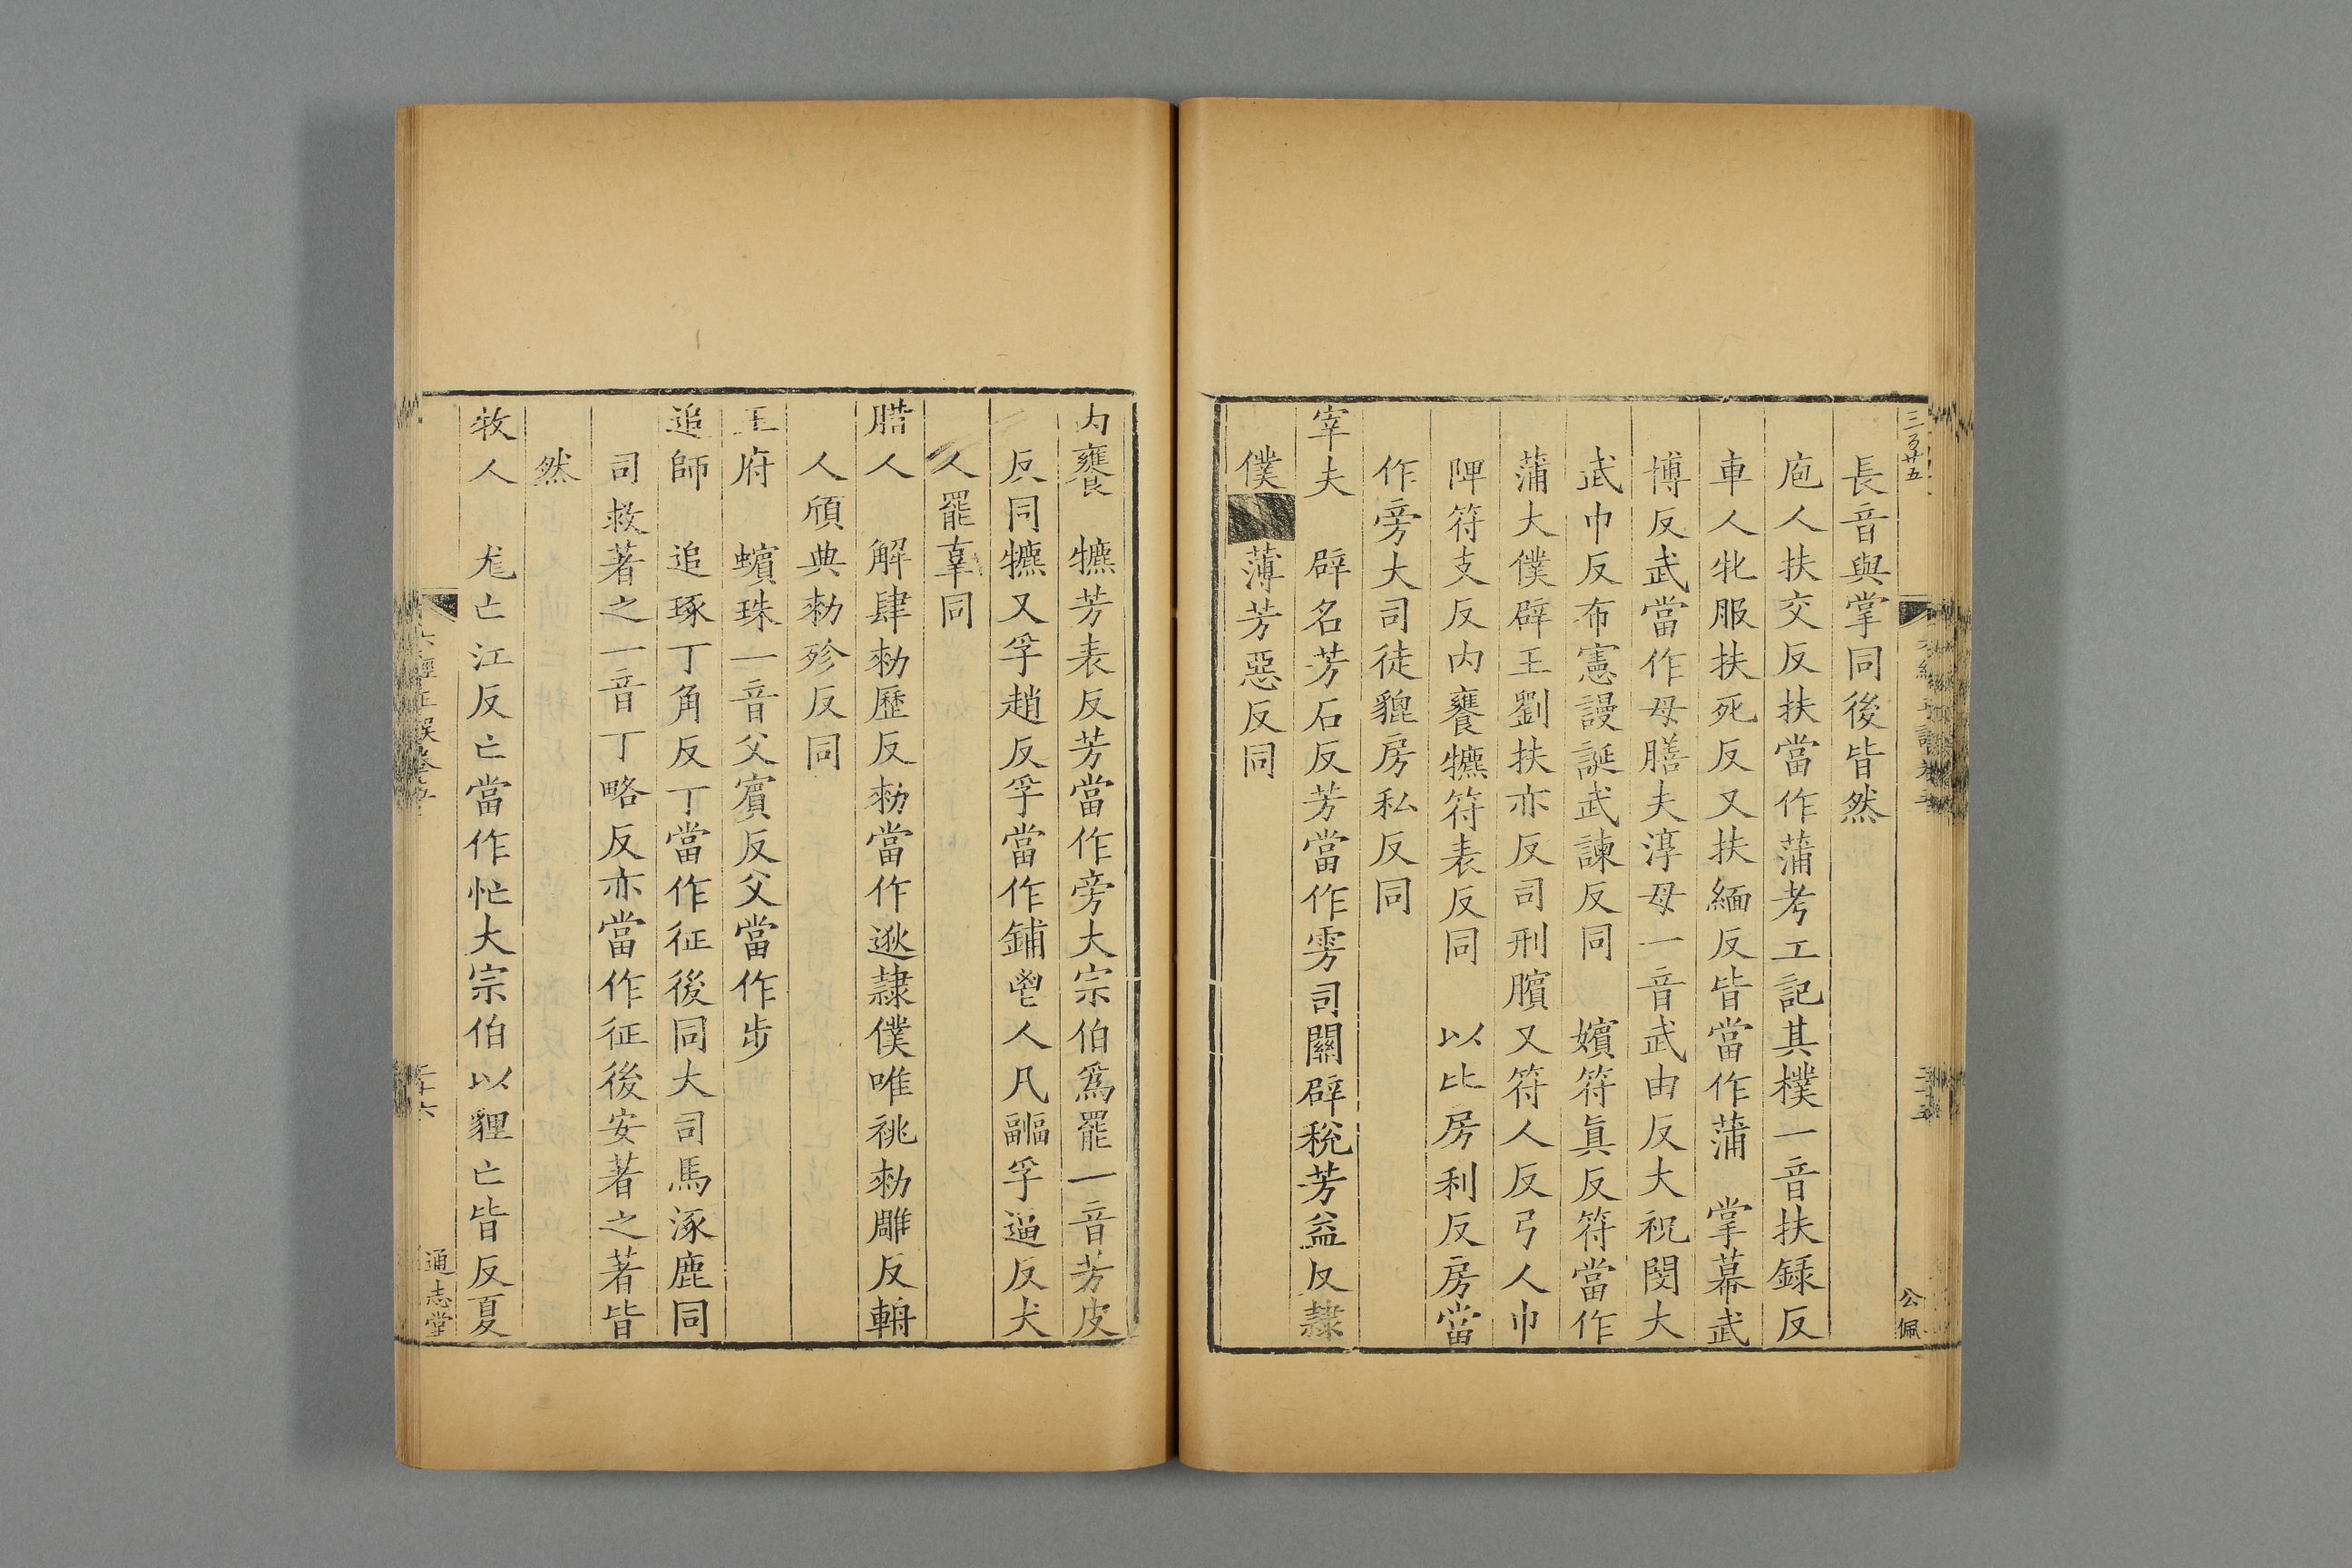 三百廿五
公佩
長音與掌同後皆然
庖人扶交反扶當作蒲考工記其樸一音扶録反
車人牝服扶死反又扶緬反皆當作蒲 掌幕武
博反武當作母膳夫淳母一音武由反大祝閔大
武巾反布憲謾誕武諫反同 嬪符眞反符當作
蒲大僕辟王劉扶亦反司刑臏又符人反弓人巾
陴符支反内饔犥符表反同 以比房利反房當
作旁大司徒貔房私反同
宰夫 辟名芳石反芳當作雱司關辟稅芳益反隷
僕 薄芳惡反同
内饔 犥芳表反芳當作旁大宗伯爲罷一音芳皮
反同犥又孚趙反孚當作鋪鬯人凡疈孚逼反犬
人罷辜同
腊人 解肆勑歷反勑當作逖隷僕唯祧勑雕反輈
人頎典勑殄反同
王府 蠙珠一音父賔反父當作步
追師 追琢丁角反丁當作征後同大司馬涿鹿同
司救著之一音丁略反亦當作征後安著之著皆
然
牧人 尨亡江反亡當作忙大宗伯以貍亡皆反夏
六經正誤卷五
二十六
通志堂